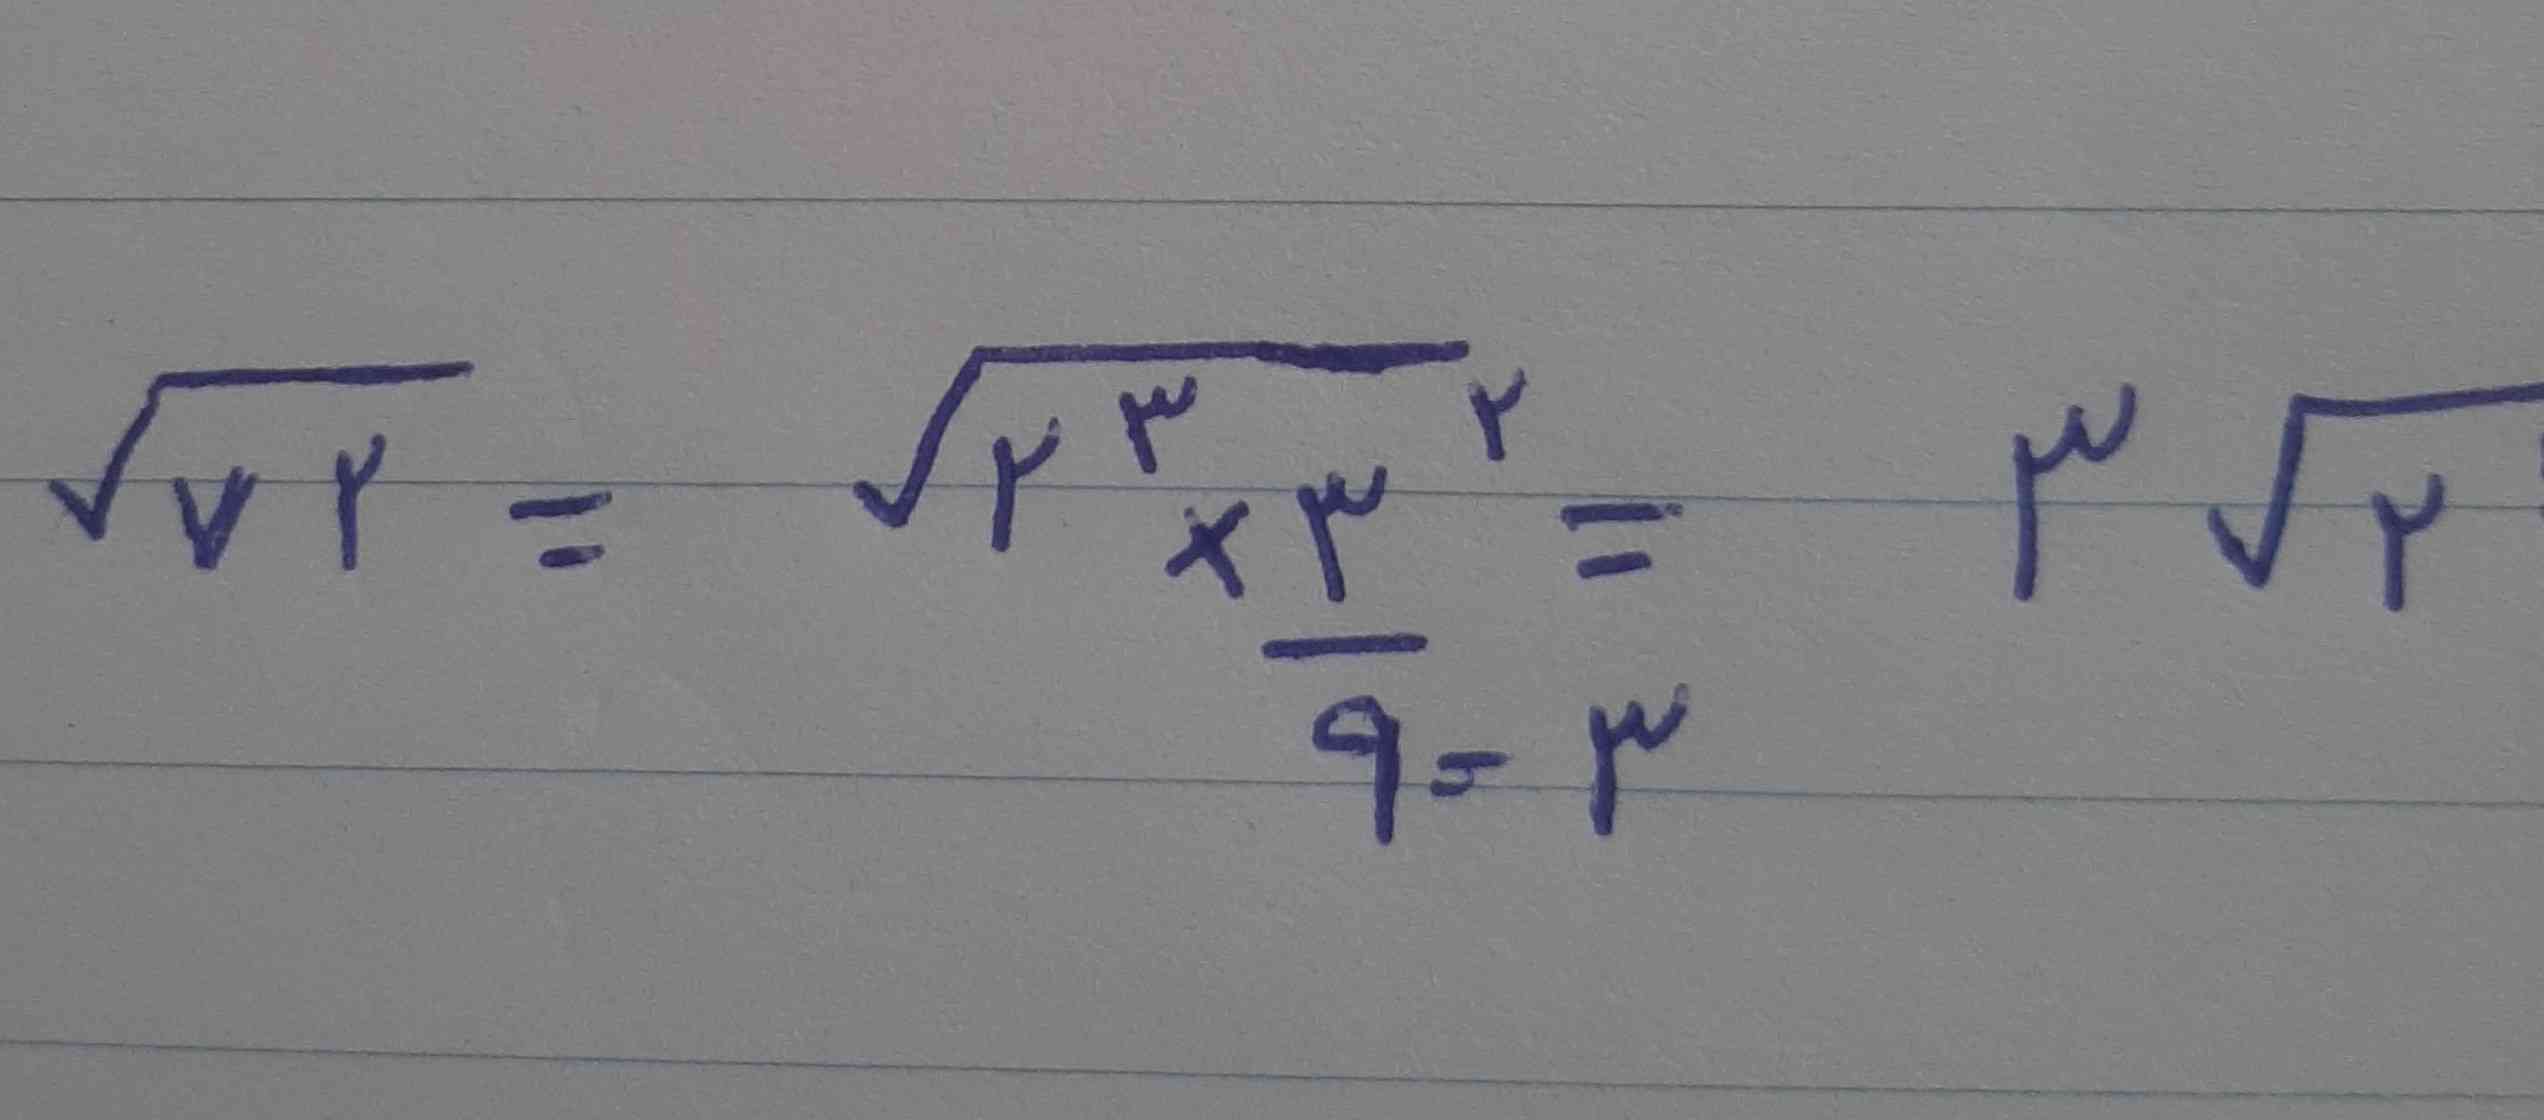 √۷۲ = √۲^۳ × ۳^۲ = ۳ √۲
۹ = ۳